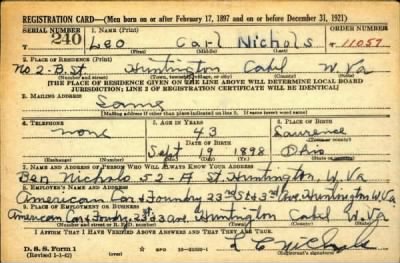 REGISTRATION CARD—(Men born on or after February 17, 1897 and on or before December 31, 1921)
SERIAL NUMBER 1. NAME (Print) ORDER NUMBER
240 Leo Carl Nichols 11059
(First) (Middle) (Last)
2. PLACE OF RESIDENCE (Print)
No 2-B. St. Huntington Cabil W. Va
(Number and street) (Town, township, village, or city) (County) (State)
[THE PLACE OF RESIDENCE GIVEN ON THE LINE ABOVE WILL DETERMINE LOCAL BOARD
JURISDICTION; LINE 2 OF REGISTRATION CERTIFICATE WILL BE IDENTICAL]
3. MAILING ADDRESS
Same
[Mailing address if other than place indicated on line 2. If same insert word same]
4. TELEPHONE 5. AGE IN YEARS 6. PLACE OF BIRTH
none 43 Lawrence
DATE OF BIRTH (Town or county)
Sept 19 1898 Ohio
(Exchange) (Number) (Mo.) (Day) (Yr.) (State or country)
7. NAME AND ADDRESS OF PERSON WHO WILL ALWAYS KNOW YOUR ADDRESS
Ben Nichols 52-A St. Huntington W. Va
8. EMPLOYER'S NAME AND ADDRESS
American Car & Foundry 23rd St & 3rd Ave. Huntington W. Va.
9. PLACE OF EMPLOYMENT OR BUSINESS
American Car & Foundry. 23rd & 3 ave. Huntington Cabil W. Va
(Number and street or R. F. D. number) (Town) (County) (State)
I AFFIRM THAT I HAVE VERIFIED ABOVE ANSWERS AND THAT THEY ARE TRUE.
D. S. S. Form 1
(Revised 1-1-42) GPO
L C Nichols